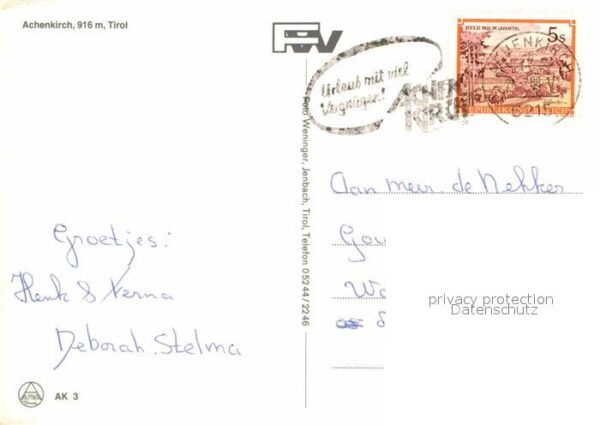 Achenkirch, 916 m, Tirol
STIFT ST. PAUL IM LAVANTTAL
5s
REPUBLIK ÖSTERREICH
Urlaub mit viel
Vergnügen!
ACHEN
KIRCH
ACHENKIRCH
6215
Foto Weninger, Jenbach, Tirol, Telefon 05244/2246
Aan meur. de Nekker
Groetjes:
Henk & Verna
Deborah. Stelma
privacy protection
Datenschutz
ALPINA
AK 3